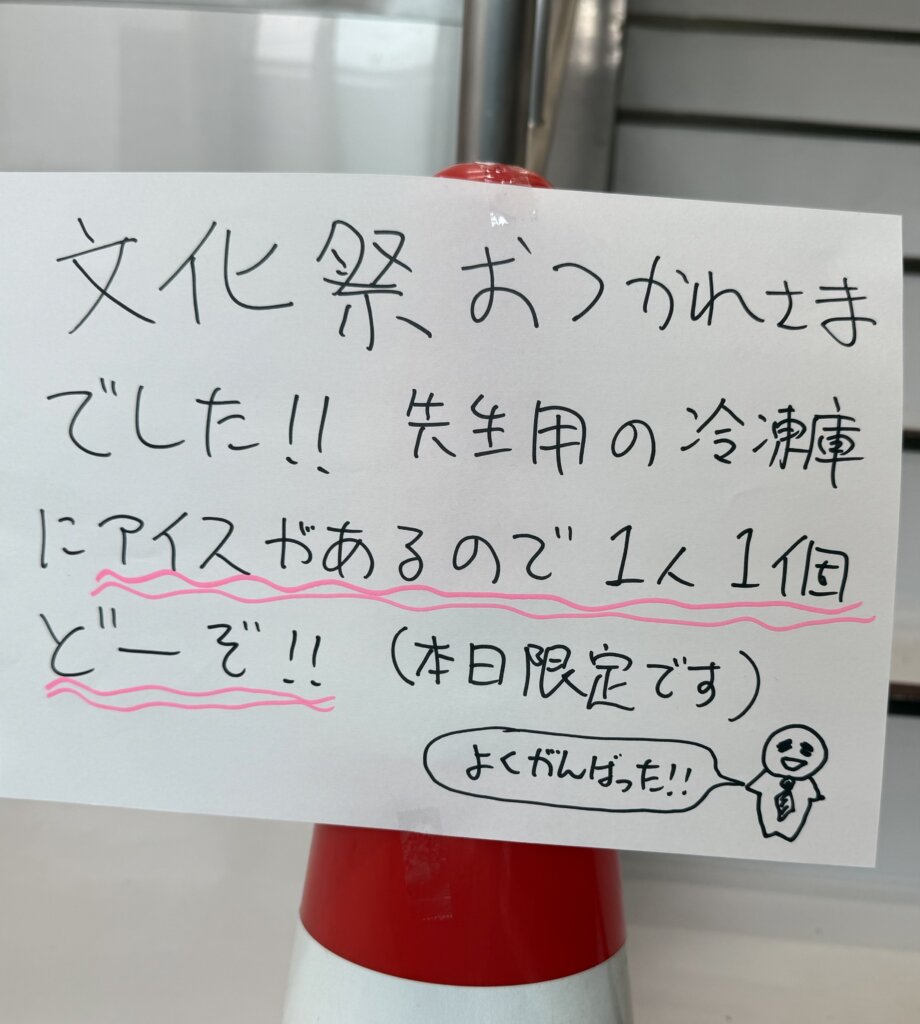 文化祭おつかれさま
でした!! 先生用の冷凍庫
にアイスがあるので1人1個
どーぞ!! (本日限定です)
よくがんばった!!